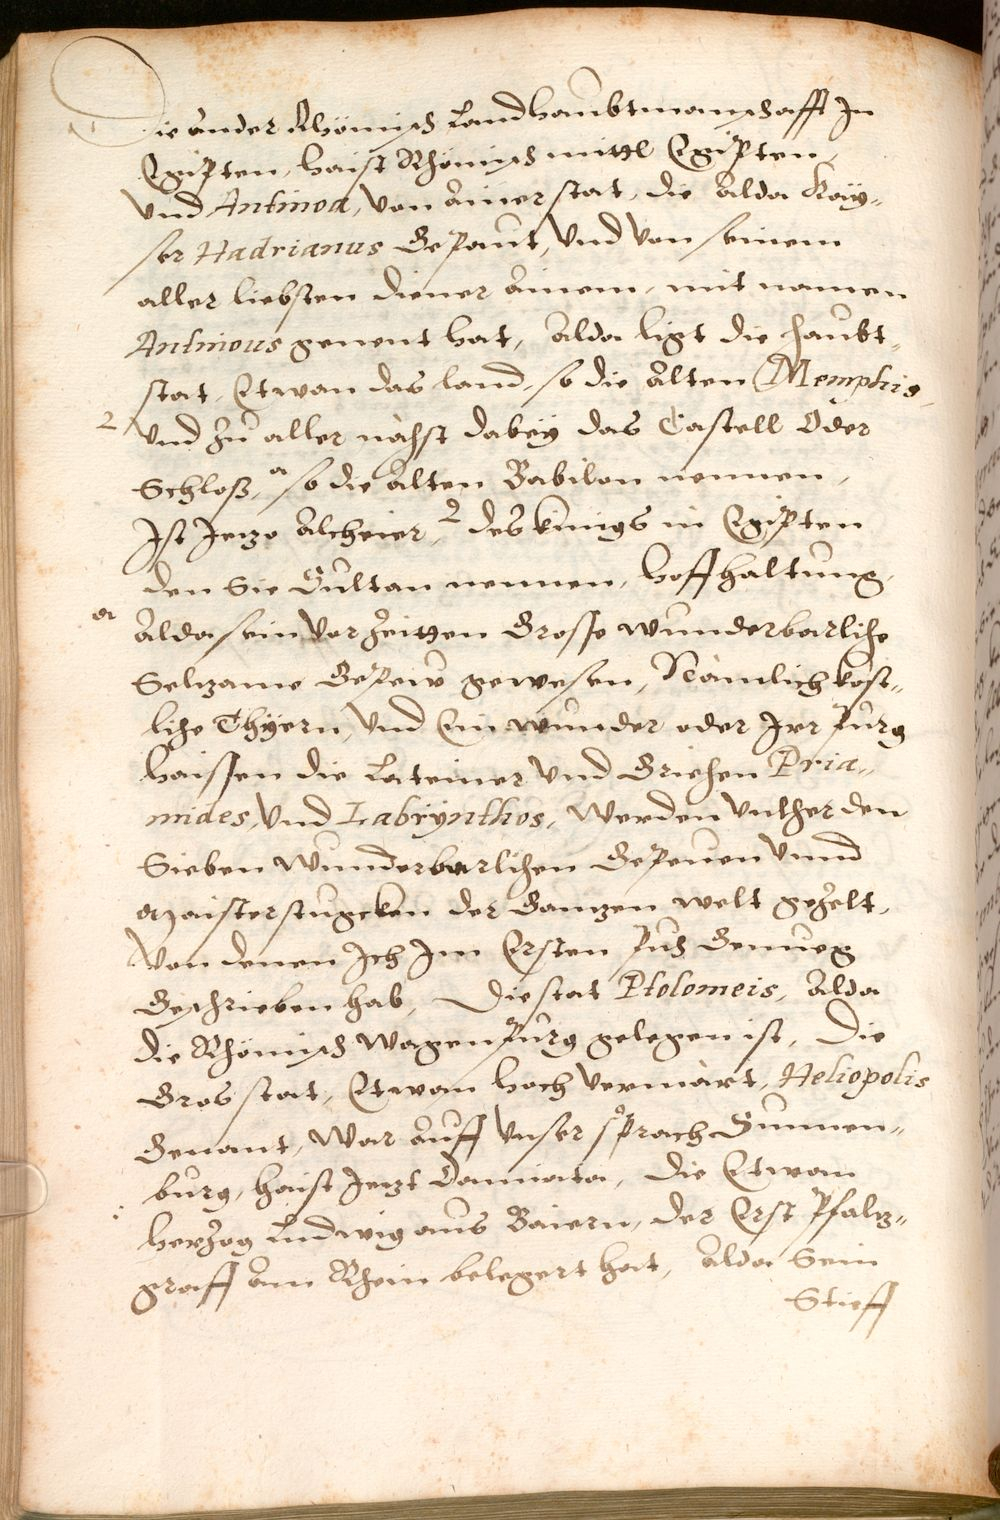 Die ander Rhömisch Landhaubtmanschafft In
Egipten, haist Rhömisch mittl Egipten,
Vnd Antinoa, von ainer stat, die alda Kaÿ„
ser Hadrianus Gepaut, Vnd von seinem
aller liebsten diener ainem, mit namen
Antinous genent hat, alda ligt die haubt„
stat, Etwan das land, so die alten Memphis,
2 Vnd zu aller nächst dabeÿ das Castell Oder
Schloß, a so die alten Babilon nennen,
Ist Jetzo Alcheier, 2 des künigs in Egipten
den Sie Sultan nennen, hoffhaltung,
a alda sein vor zeitten Grosse wunderbarliche
Seltzame Gepew gewesen, Nämlich köst„
liche Thÿern, Vnd Ein wunder oder Irr purg
haissen die Lateiner Vnd Griechen Pria„
mides, Vnd Labÿrÿnthos, Werden vnther den
Sieben Wunderbarlichen Gepeuen Vnnd
Maisterstugcken der Gantzen welt gezelt,
Von denen Ich Im Ersten puch Genueg
Geschrieben hab, Die stat Ptolomeis, alda
die Rhömisch Wagenpurg gelegen ist, Die
Gros stat, Etwan hoch vermärt, Heliopolis
Genant, War auff Vnser sprach Sunnen„
burg, haist Jetzt Damiata, die Etwan
hertzog Ludwig aus Baiern, der Erst Pfaltz„
graff am Rhein belegert hat, alda Sein
Stieff